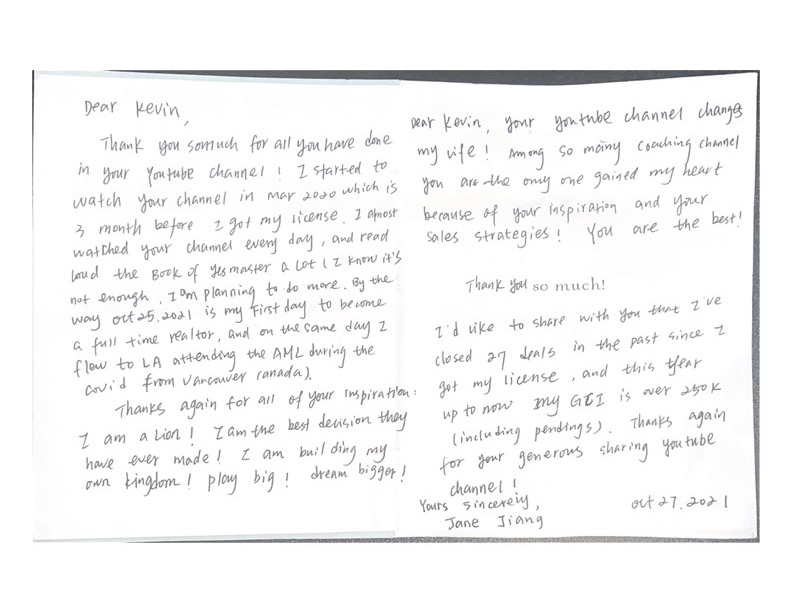 Dear Kevin,
Thank you somuch for all you have done
in your Youtube channel! I started to
watch your channel in Mar 2020 which is
3 month before I got my license. I almost
watched your channel every day, and read
loud the Book of yesmaster a lot (I know it's
not enough, I am planning to do more. By the
way oct 25.2021 is my first day to become
a full time realtor, and on the same day I
flew to LA attending the AML during the
covid from Vancouver canada).
Thanks again for all of your inspiration:
I am a Lion! I am the best decision they
have ever made! I am building my
own kingdom! play big! dream bigger!
Dear Kevin, your youtube channel changes
my life! Among so many coaching channel
you are the only one gained my heart
because of your inspiration and your
sales strategies! You are the best!
Thank you so much!
I'd like to share with you that I've
closed 27 deals in the past since I
got my license, and this year
up to now my GCI is over 250K
(including pendings). Thanks again
for your generous sharing youtube
channel!
Yours sincerely,
Jane Jiang
oct 27.2021